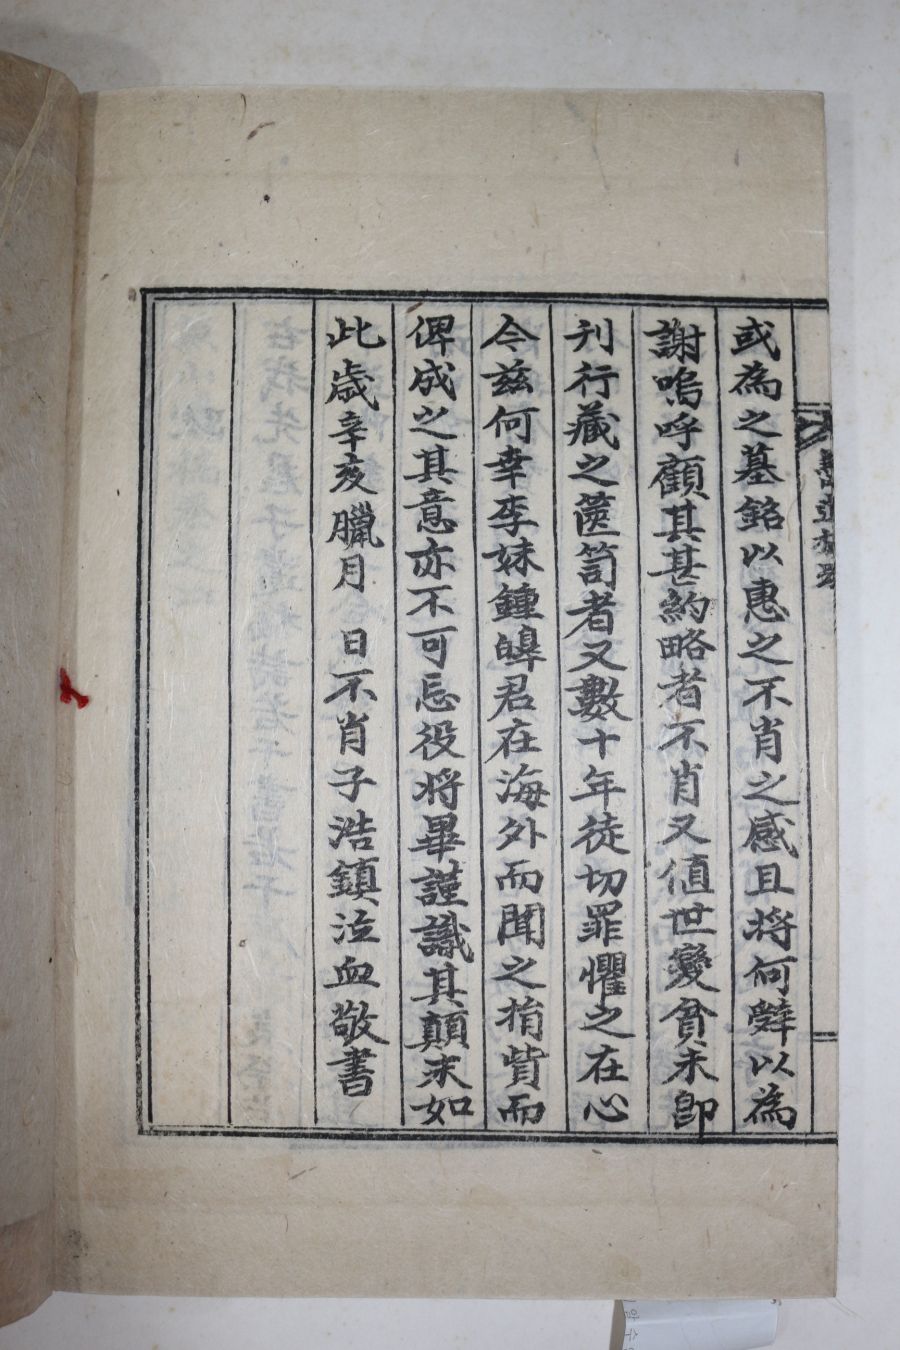 或為之墓銘以惠之不肖之感且将何辭以為
謝嗚呼顧其甚約略者不肖又値世變貧未卽
刊行藏之篋笥者又數十年徒切罪懼之在心
今玆何幸李妹鍾皥君在海外而聞之捐貲而
俾成之其意亦不可忘役将畢謹識其顛末如
此歲辛亥臘月 日不肖子浩鎮泣血敬書